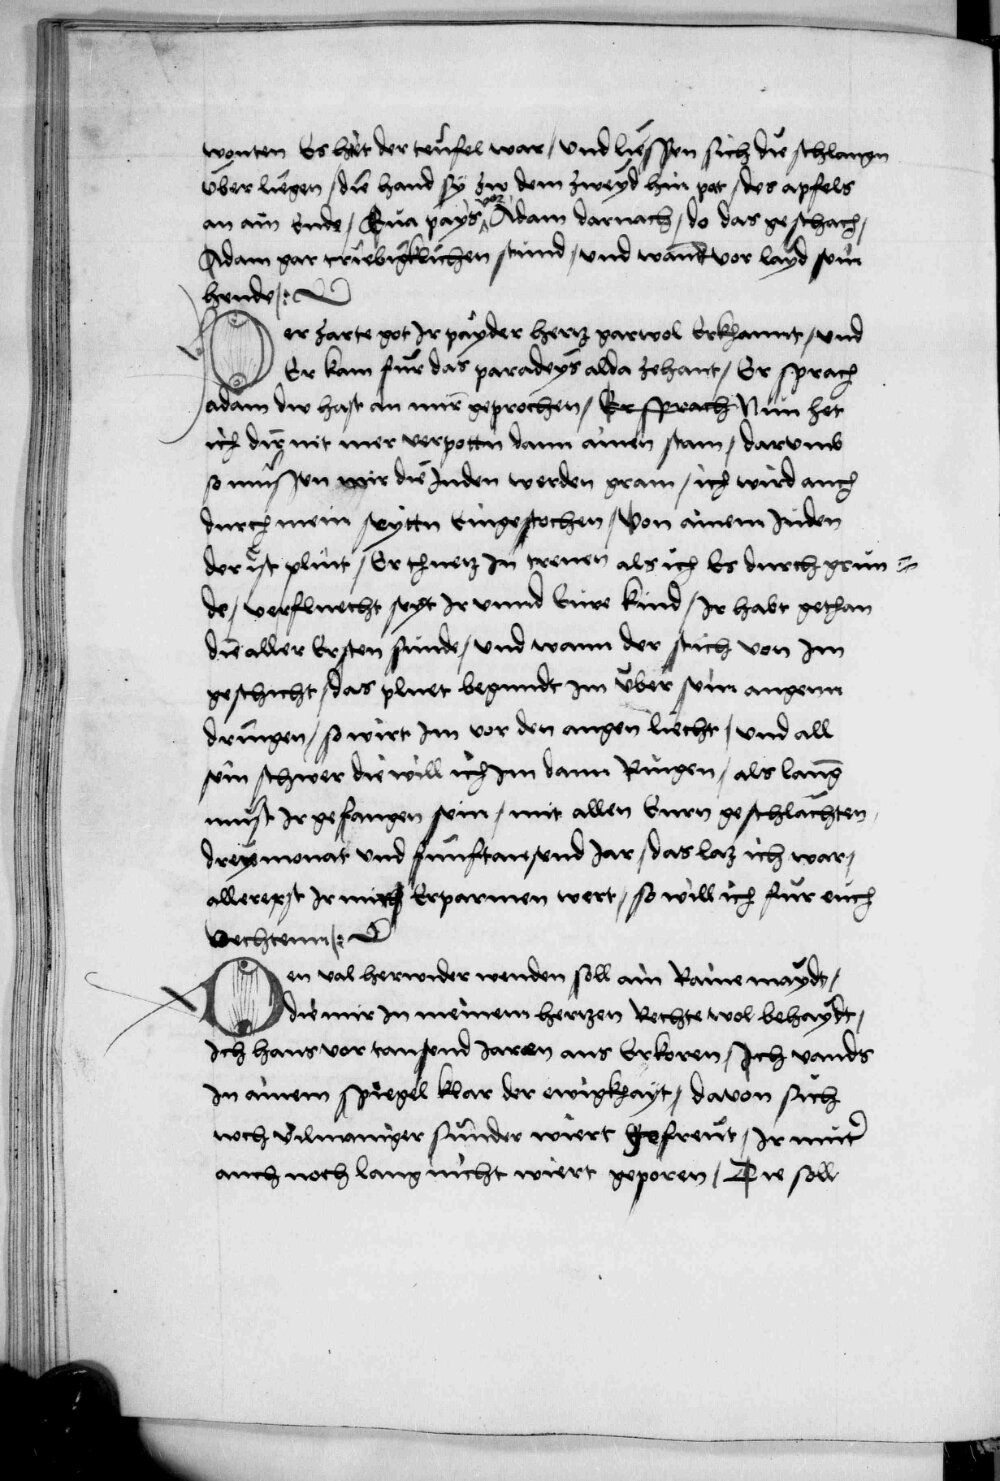 wonten Es het der teüfel war / vnd liessen sich die schlangn
über liegen / die hand sy zw dem zweyd hin pot / des apfels
an ain Ende / Eua pays vor Adam darnach / do das geschach /
Adam gar triebigklichen stund / vnd wand vor layd sein
hende /:
Der zarte got Ir payder hertz gar wol Erkhannt / vnd
Er kam für das paradeys alda zehant / Er sprach
adam dw hast an mir geprochen / Er sprach Nun het
ich dir nit mer verpottn dann ainen stam / darvmb
so müssen mir die Juden werden gram / ich wird auch
durch mein seyttn Eingestochen / Von ainem Juden
der ist plint / Er thuetz In trewen als ich Es durch grün =
de / verfluecht seyt Ir vnnd Eure kind / Ir habt gethan
die aller Ersten sünde / vnd wann der stich von Im
geschicht / das pluet begundt im über sein augenn
dringen / so wirt Im vor den augen liecht / vnd all
sein schwer die will ich Im dann Ringen / als lang
müst Ir gefangen sein / mit allen Eurn geschlächten /
drey monat vnd fünftausend Jar / das laz ich war /
allererst Ir mich Erparmen wert / so will ich für euch
Vechtenn /:
Den val herwider wenden soll ain Raine maydt /
die mir In meinem hertzen Rechte wol behaydt /
Ich hans vor tausend Jaren aus Erkoren / Ich vands
In ainem spiegel klar der ewigkhayt / davon sich
noch vil maniger sünder wiert gefreüt / Ir muter
auch noch lang nicht wiert geporen / Die soll